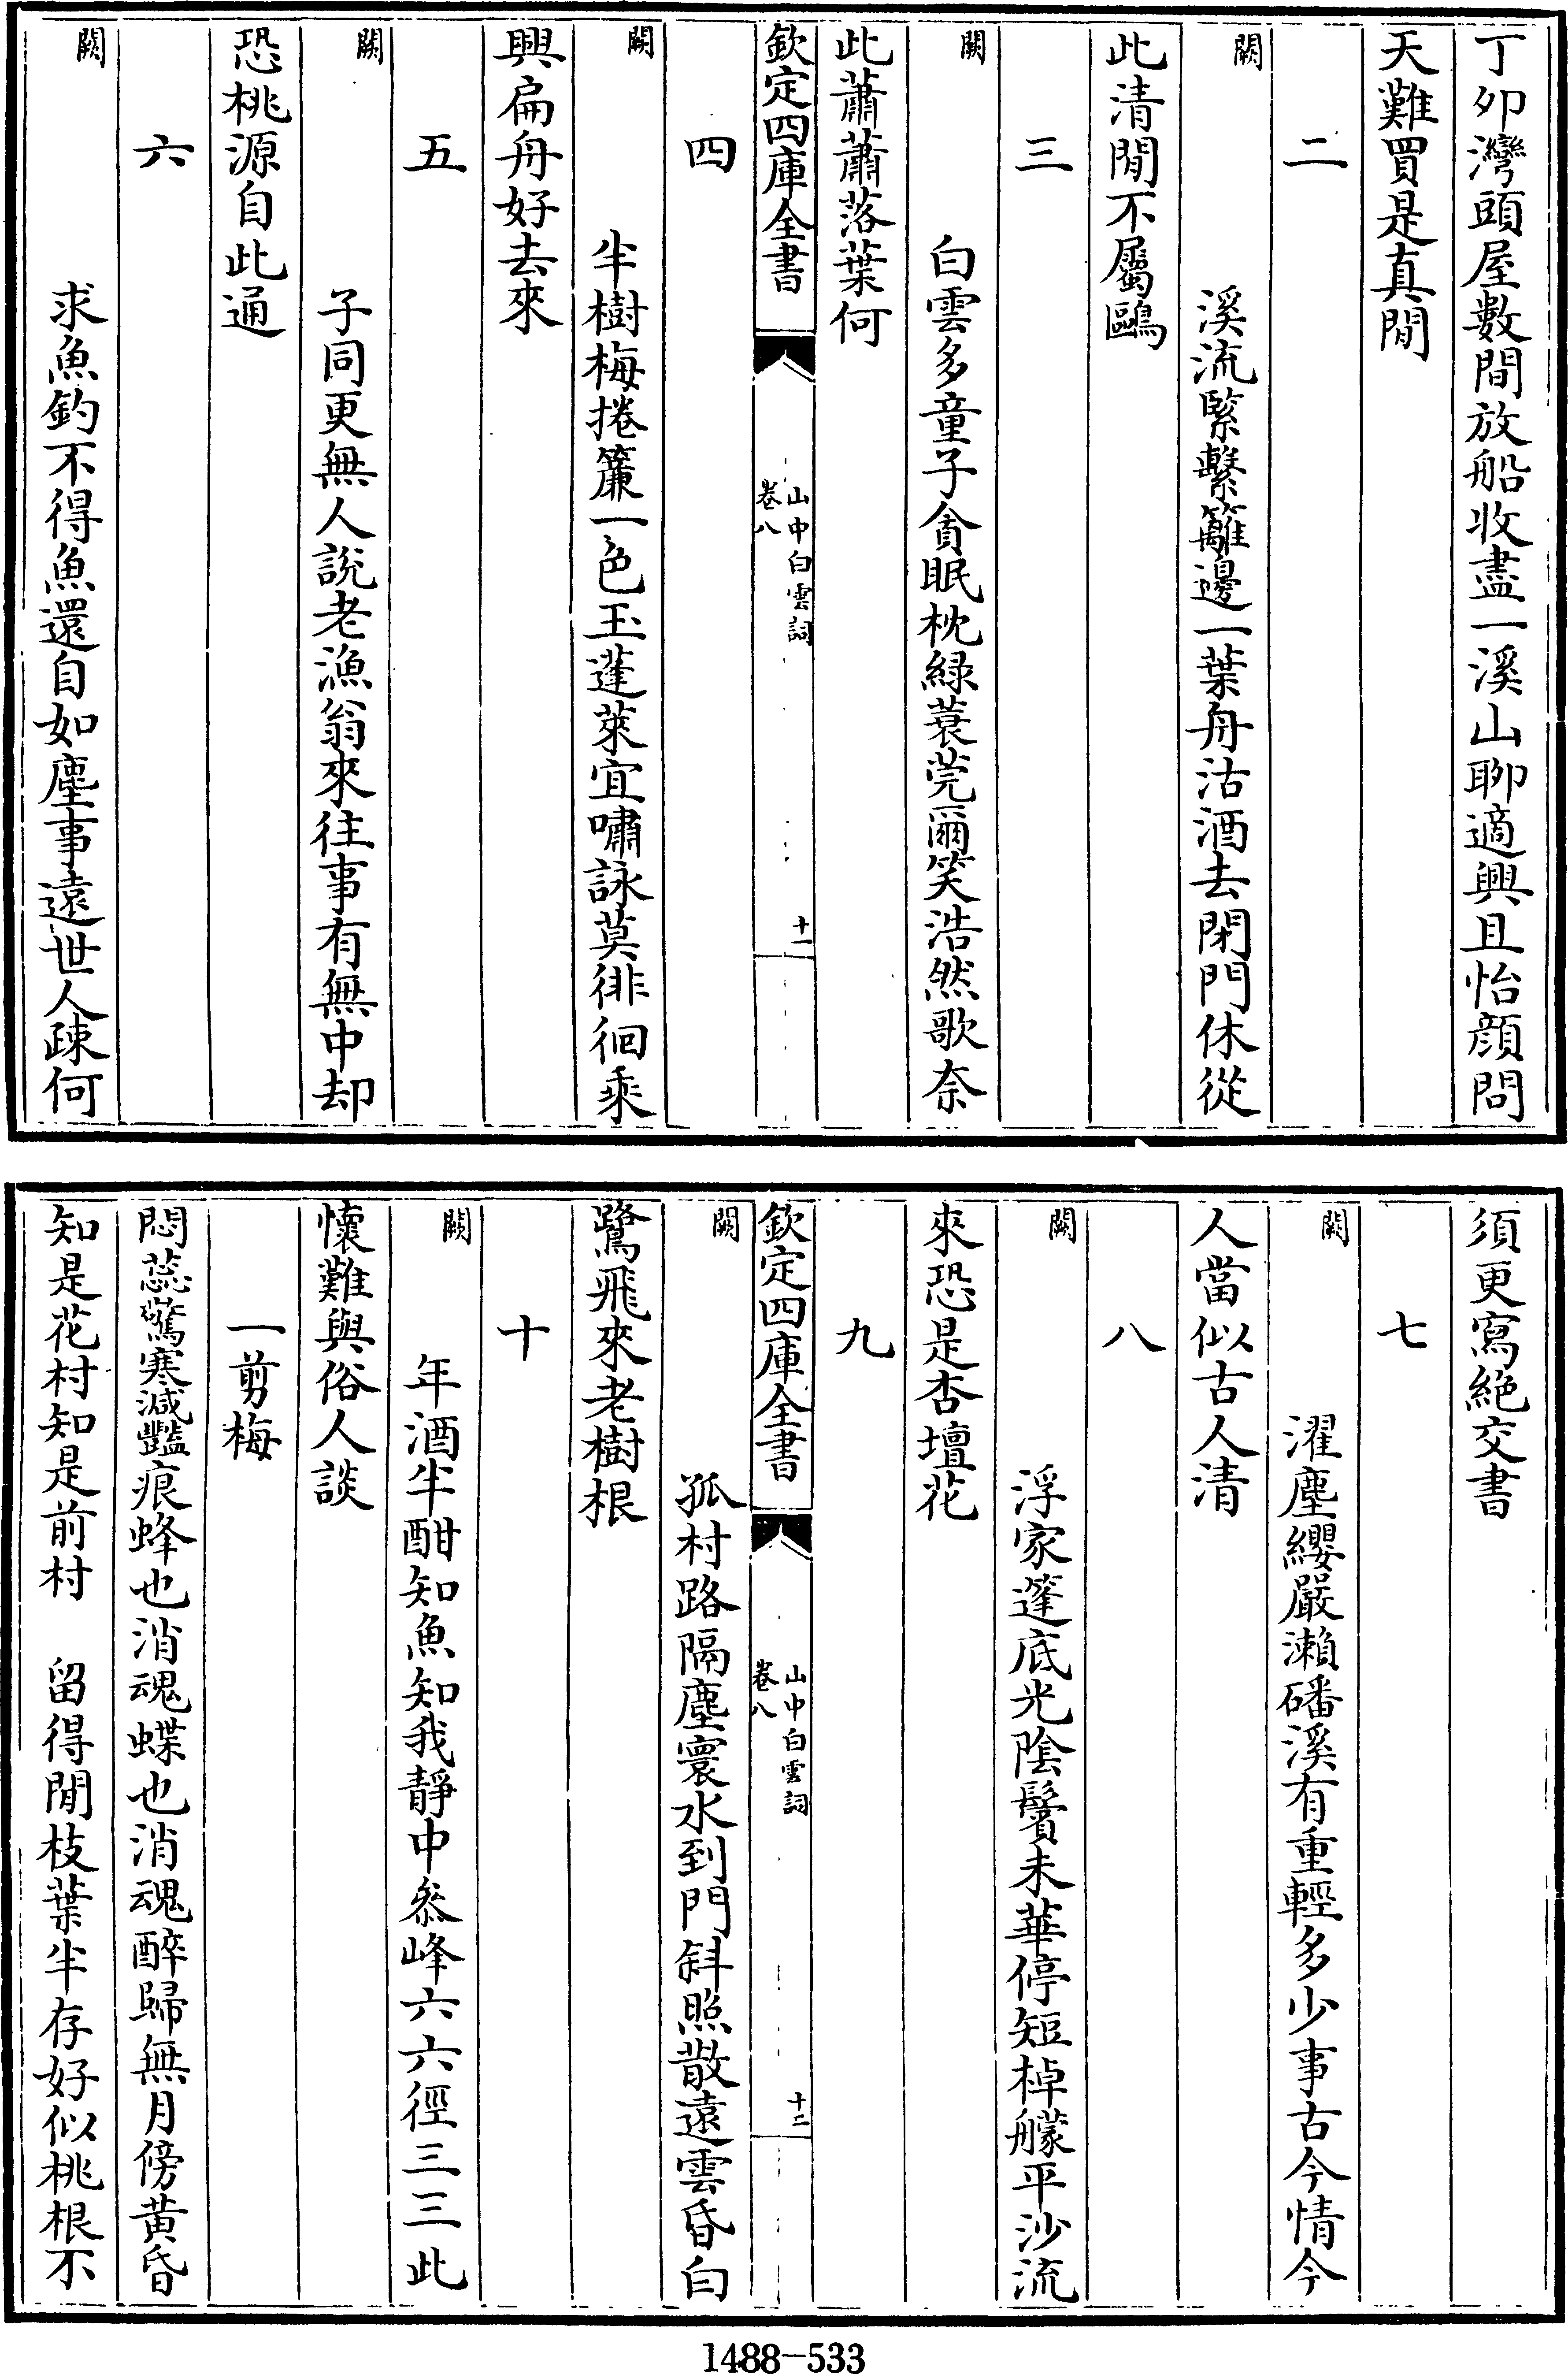 丁卯灣頭屋數間放船收盡一溪山聊適興且怡顔問
天難買是真閒
二
闕 溪流緊繫籬邊一葉舟沽酒去閉門休從
此清閒不屬鷗
三
闕 白雲多童子貪眠枕綠蓑莞爾笑浩然歌奈
此蕭蕭落葉何
欽定四庫全書
山中白雲詞
卷八
十一
四
闕 半樹梅捲簾一色玉蓬萊宜嘯詠莫徘徊乘
興扁舟好去來
五
闕 子同更無人說老漁翁來往事有無中却
恐桃源自此通
六
闕 求魚釣不得魚還自如塵事遠世人疎何
須更寫絶交書
七
闕 濯塵纓嚴瀨磻溪有重輕多少事古今情今
人當似古人清
八
闕 浮家篷底光陰鬢未華停短棹艤平沙流
來恐是杏壇花
九
欽定四庫全書
山中白雲詞
卷八
十二
闕 孤村路隔塵寰水到門斜照散遠雲昏白
鷺飛來老樹根
十
闕 年酒半酣知魚知我靜中叅峰六六徑三三此
懷難與俗人談
一剪梅
悶蕊驚寒減豔痕蜂也消魂蝶也消魂醉歸無月傍黃昏
知是花村知是前村 留得閒枝葉半存好似桃根不
1488-533